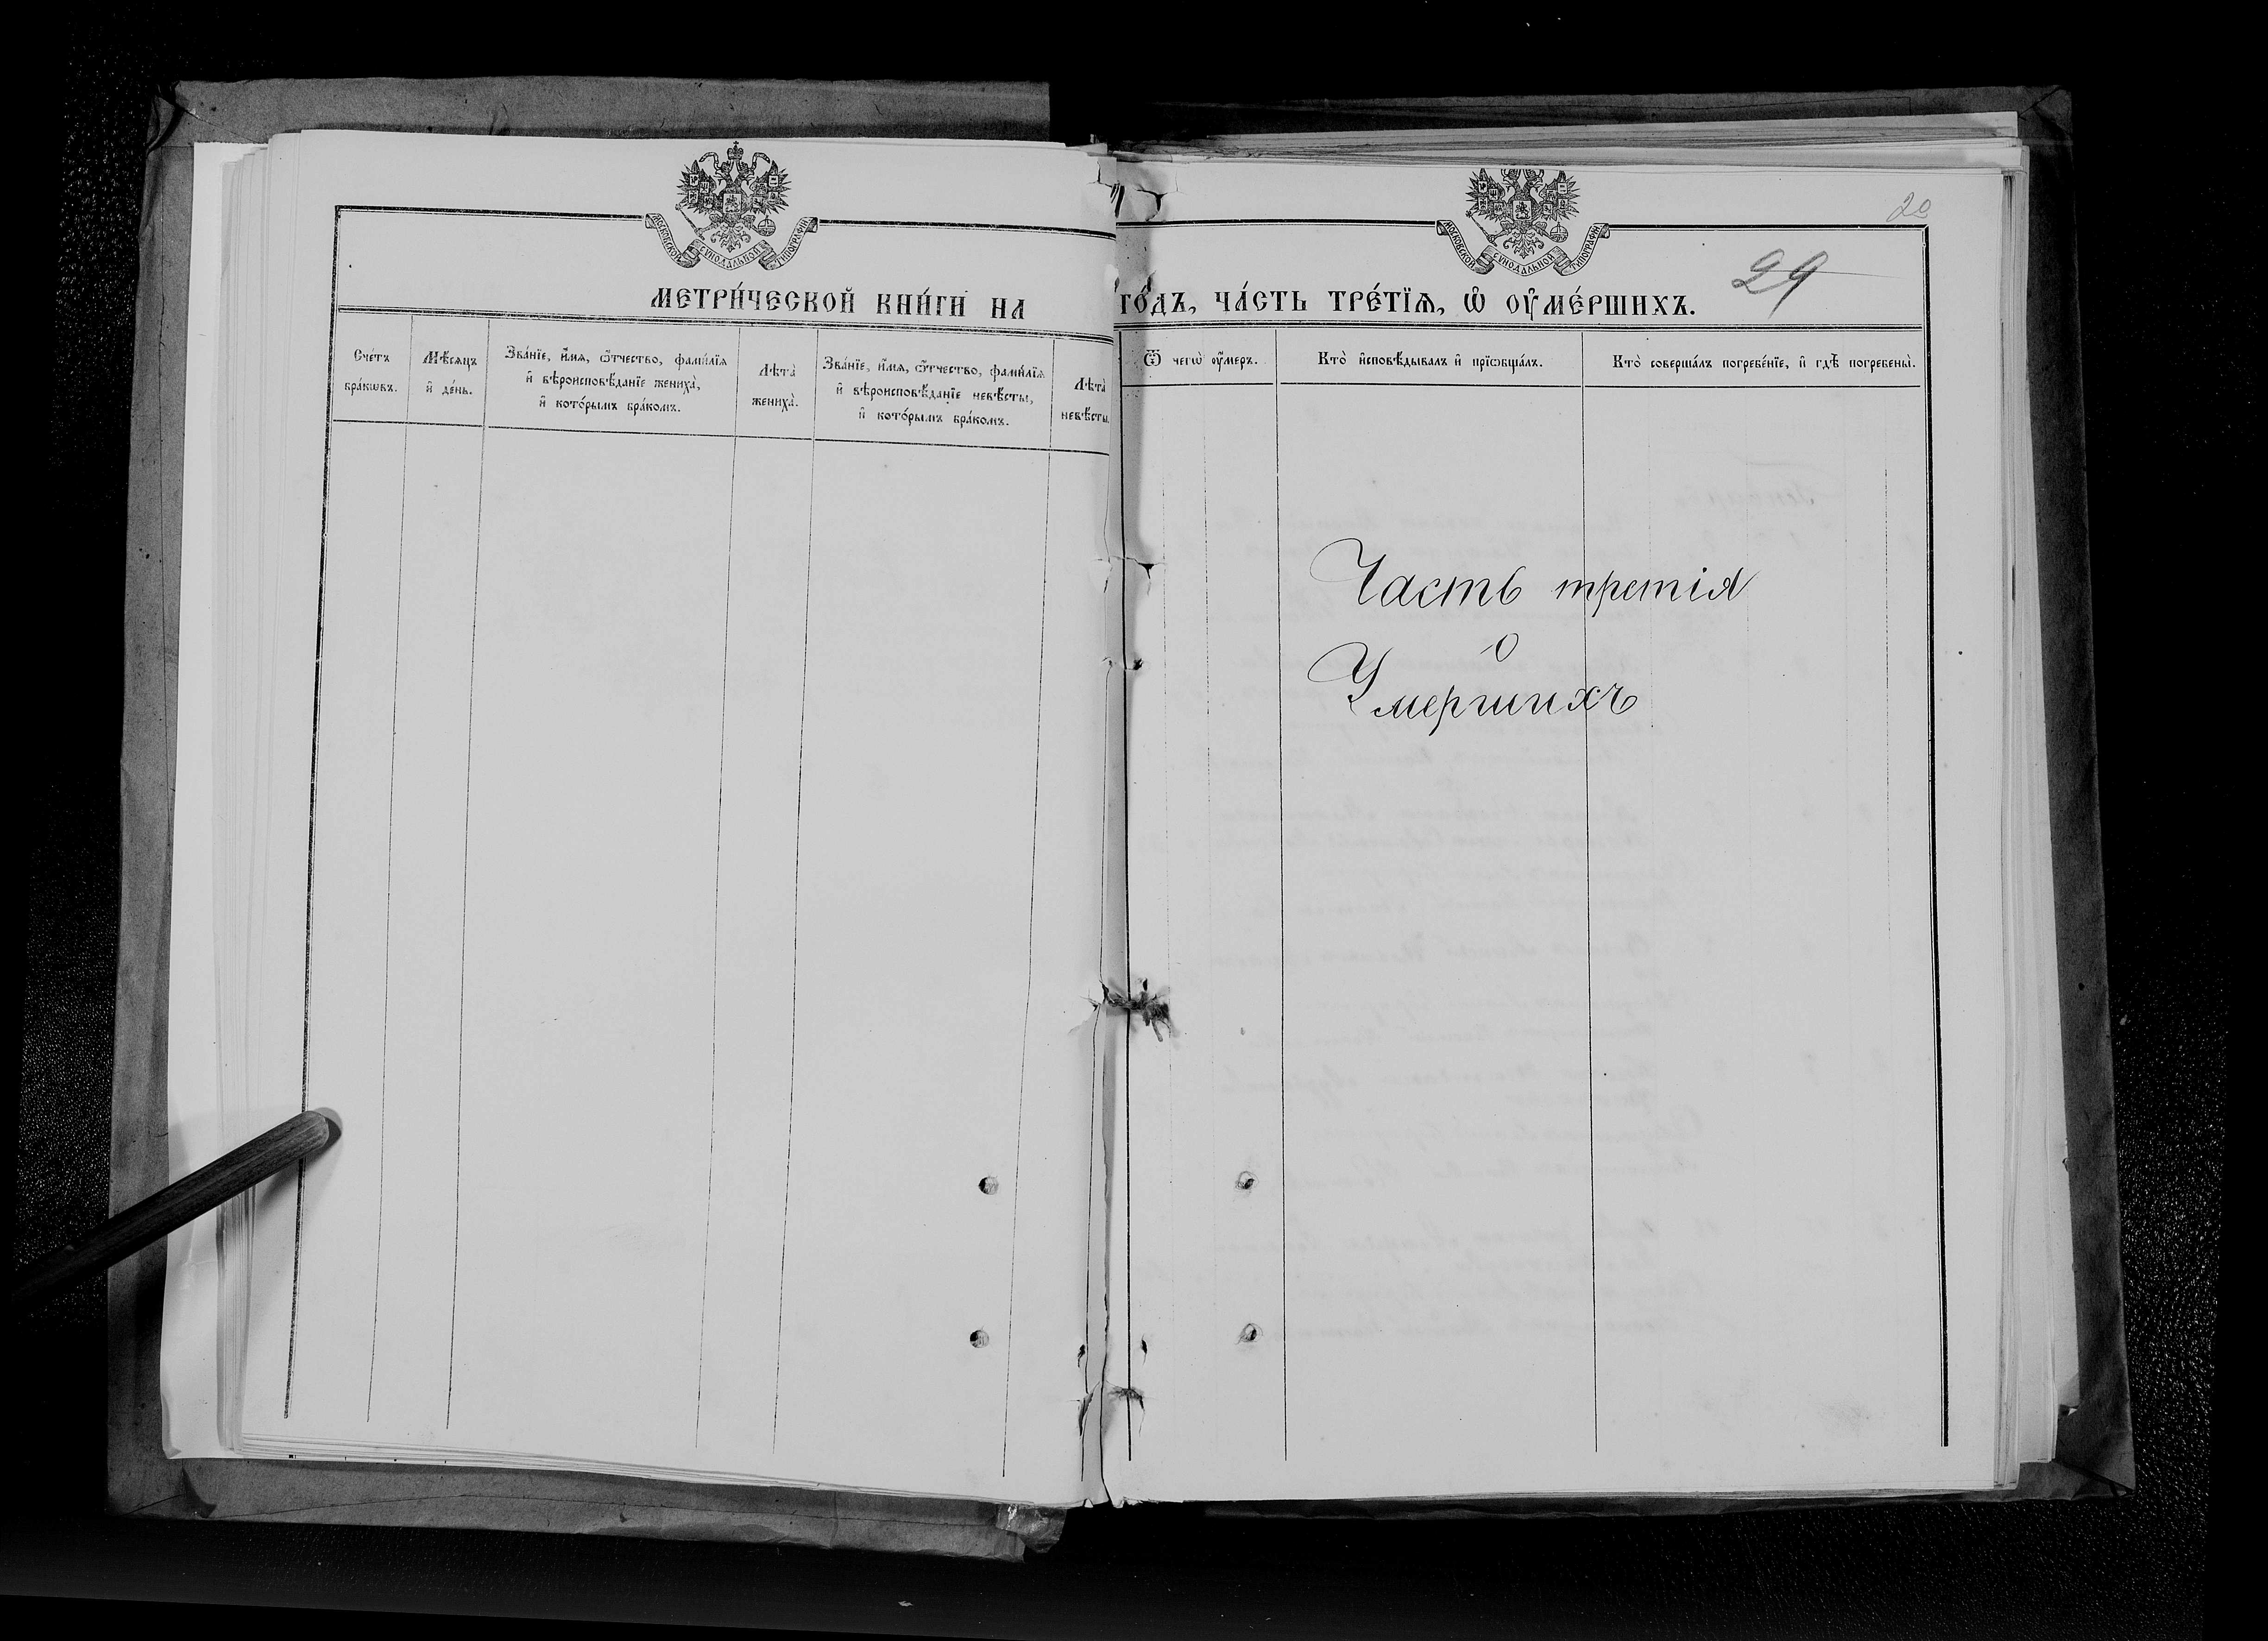 МОСКОВСКОЙ СѴНОДАЛЬНОЙ ТИПОГРАФІИ
МЕТРИ́ЧЕСКОЙ КНИ́ГИ НА
Сче́тъ бра́кѡвъ.
Мѣ́сяцъ и҆ де́нь.
Зва́нїе, и҆́мя, ѻ҆́тчество, фами́лїя
и҆ вѣроисповѣ́данїе жениха̀,
и҆ кото́рымъ бра́комъ.
Лѣта̀ жениха̀.
Зва́нїе, и҆́мя, ѻ҆́тчество, фами́лїя
и҆ вѣроисповѣ́данїе невѣ́сты,
и҆ кото́рымъ бра́комъ.
Лѣта̀ невѣ́сты.
20
МОСКОВСКОЙ СѴНОДАЛЬНОЙ ТИПОГРАФІИ
29
го́дъ, ЧА́СТЬ ТРЕ́ТЇѦ, Ѡ҆ ОУ҆МЕ́РШИХЪ.
Ѿ чегѡ̀ оу҆́меръ.
Кто̀ и҆сповѣ́дывалъ и҆ прїѡбща́лъ.
Кто̀ соверша́лъ погребе́нїе, и҆ гдѣ̀ погребены̀.
Часть третія
о
Умершихъ